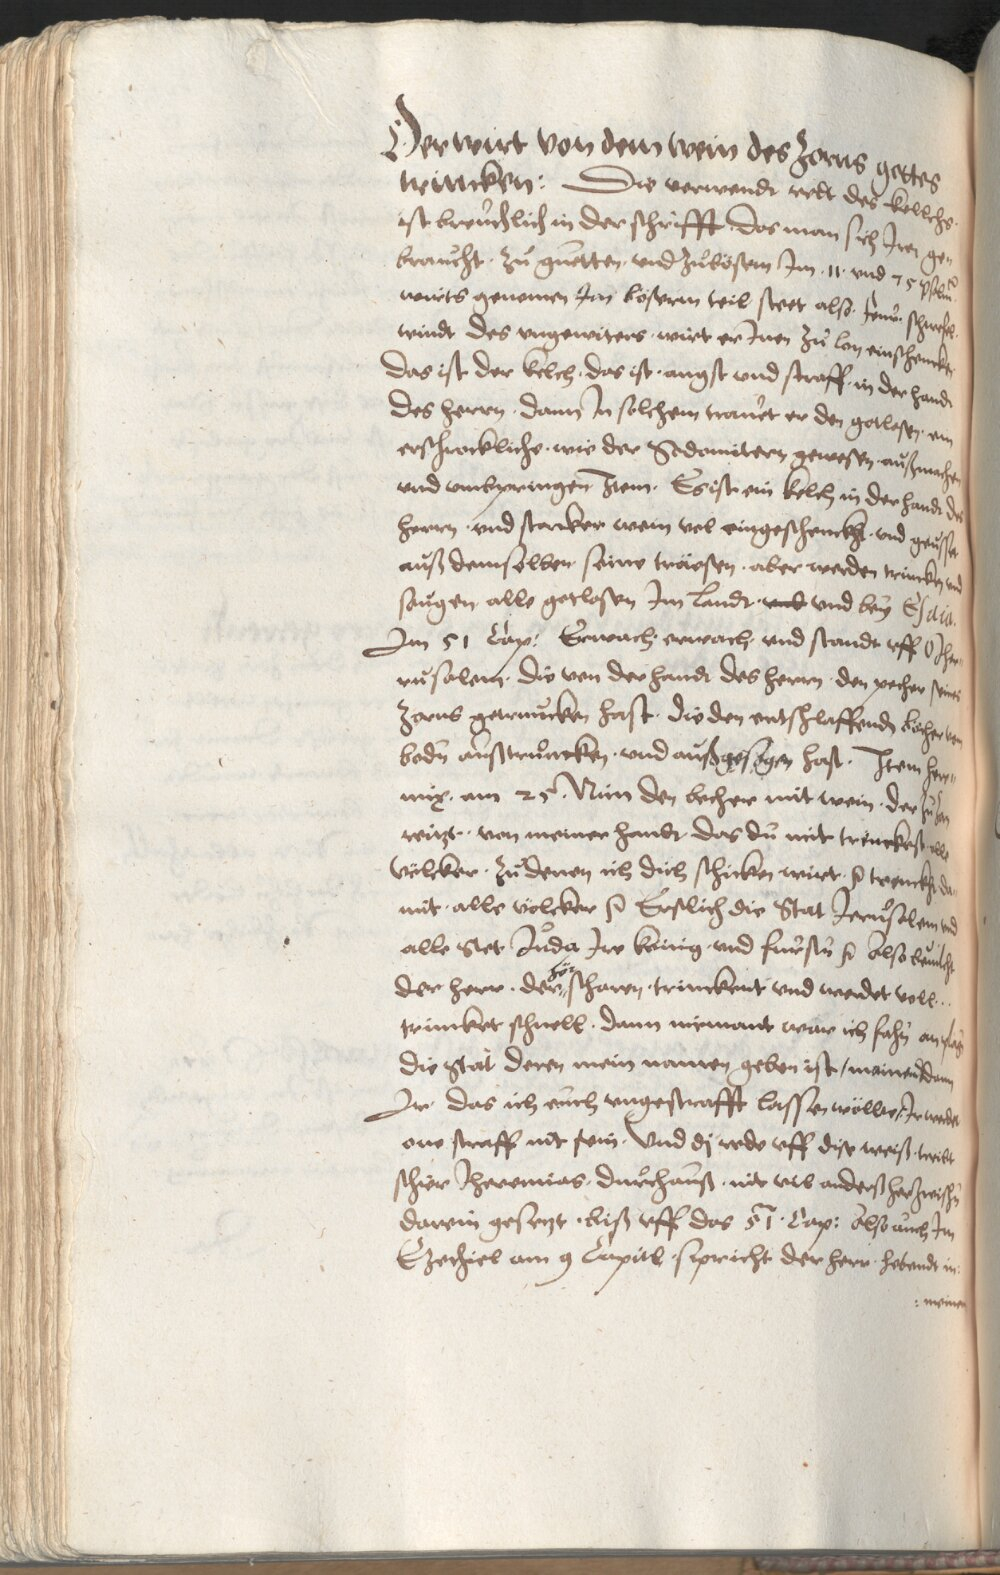 Der wirt von dem wein des zorns gottes
trincken: Die verwendt redt des kellchs
ist breuchlich in der schrifft. Das man sich Iren ge
braucht. zu guetten. und zu bösem Im. 11. und 75 psalm
wirts genomen Im bösern teil steet also. feur. schwefel.
windt des ungewiters. wirt er Inen zu lon einschencken
Das ist der kelch. das ist. angst und straff. in der handt
des herrn. dann In solchem trauet er den gotlosen. ein
erschrockliche. wie der Sodomitern gewesen. außmachen
und umbpringen Item. Es ist ein kelch in der handt des
herrn. und starcker wein vol eingeschenckht. und geusst
auß demselben seine träesen. aber werden trincken und
saugen alle gotlosen Im landt. und bey Esaia.
Im 51 Cap: Erwach. erwach. und standt uff O Jhe=
rusalem. die von der handt des herrn. den pecher seines
zorns getruncken hast. die den entschlaffenden becher vom
bodn austruncken. und außgesogen hast. Item Jere=
mix. am 25. Nim den becher mit wein. der zu
von meiner handt. das du mit trenckest alle
völcker. zu denen ich dich schicken wirt. trenckht da
mit. alle völcker Erstlich die Stat Jerusalem und
alle Stet Juda Ire könig. und fursten Also
der herr. der hör scharen. trinckent und werdet voll...
trincket schnell. dann niemant war ich fahn an
die Stat deren mein namen geben ist / meinend dann
Ir das ich euch ungestrafft lassen wölle; Ir werdet
one straff nit sein. Und di rede uff dise weiß. treibt
schier Jheremias. durchauß. nit vil anders herzwischn
darein gesetzt. biß uff das 51. Cap: Also auch Im
Ezechiel am 9 Capitl. spricht der herr. hebendt in
: meinen